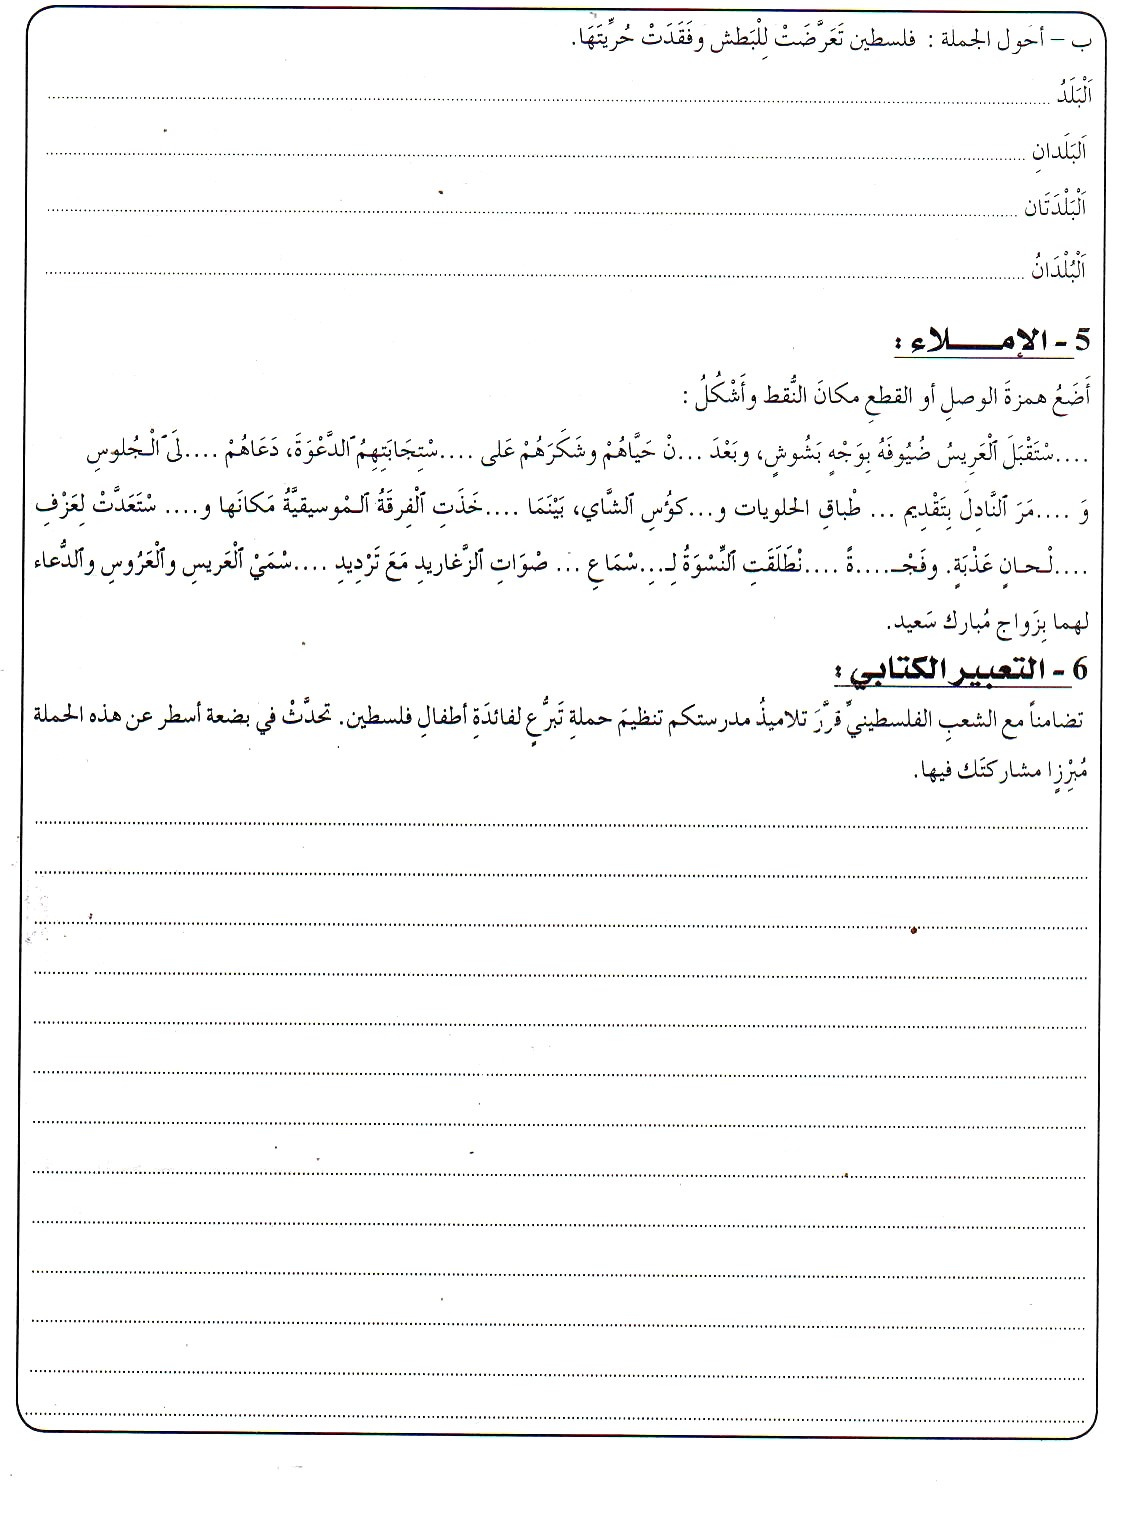 ب – أحول الجملة : فلسطين تَعَرَّضَتْ لِلْبَطش وفَقَدَتْ حُرِّيتَهَا.
اَلْبَلَدُ ........................
اَلبَلَدانِ ........................
اَلْبَلْدَتَان ........................
اَلْبُلْدَانُ ........................
5 - الإمـــــلاء :
أَضَعُ همزةَ الوصلِ أو القطعِ مكانَ النُّقط وأَشْكُلُ :
....سْتَقْبَلَ ٱلْعَرِيسُ ضُيُوفَهُ بِوَجْهٍ بَشُوشٍ، وبَعْدَ ...نْ حَيَّاهُمْ وشَكَرَهُمْ عَلى ....سْتِجَابَتِهِمُ ٱلدَّعْوَةَ، دَعَاهُمْ ....لَى ٱلْـجُلوسِ
وَ ....مَرَ ٱلنَّادِلَ بِتَقْدِيم ... طْباقِ الحلويات و...كوُسِ ٱلشَّاي، بَيْنَمَا ....خَذَتِ ٱلْفِرقَةُ ٱلـموسيقيَّةُ مَكانَها و.... سْتَعَدَّتْ لِعَزْفِ
....لْـحـانٍ عَذْبَةٍ. وفَجْـ....ةً ....نْطَلَقَتِ ٱلنِّسْوَةُ لِـ...سْمَاعِ ... صْوَاتِ ٱلزَّغاريدِ مَعَ تَرْدِيدِ ....سْمَيْ ٱلْعَريسِ وٱلْعَرُوسِ وٱلدُّعاء
لهما بِزَواج مُبارك سَعيد.
6 - التعبير الكتابي :
تضامناً مع الشعبِ الفلسطينيِّ قرَّرَ تلاميذُ مدرستكم تنظيمَ حملةِ تَبرُّعٍ لفائدَةِ أطفالِ فلسطين. تحدَّثْ في بضعة أسطر عن هذه الحملة
مُبْرِزا مشاركتَك فيها.